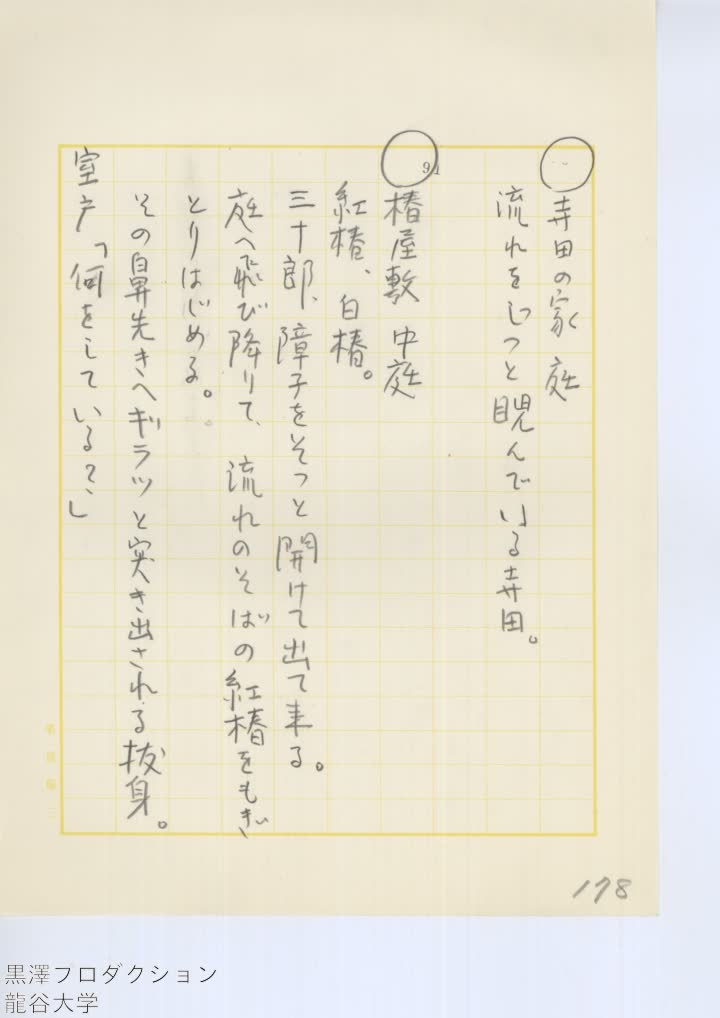 寺田の家 庭
流れをじっと睨んでいる寺田。
91
椿屋敷 中庭
紅椿、白椿。
三十郎、障子をそっと開けて出て来る。
庭へ飛び降りて、流れのそばの紅椿をもぎ
とりはじめる。
その鼻先きへギラッと突き出される抜身。
室戸「何をしている？」
178
黒澤プロダクション
龍谷大学